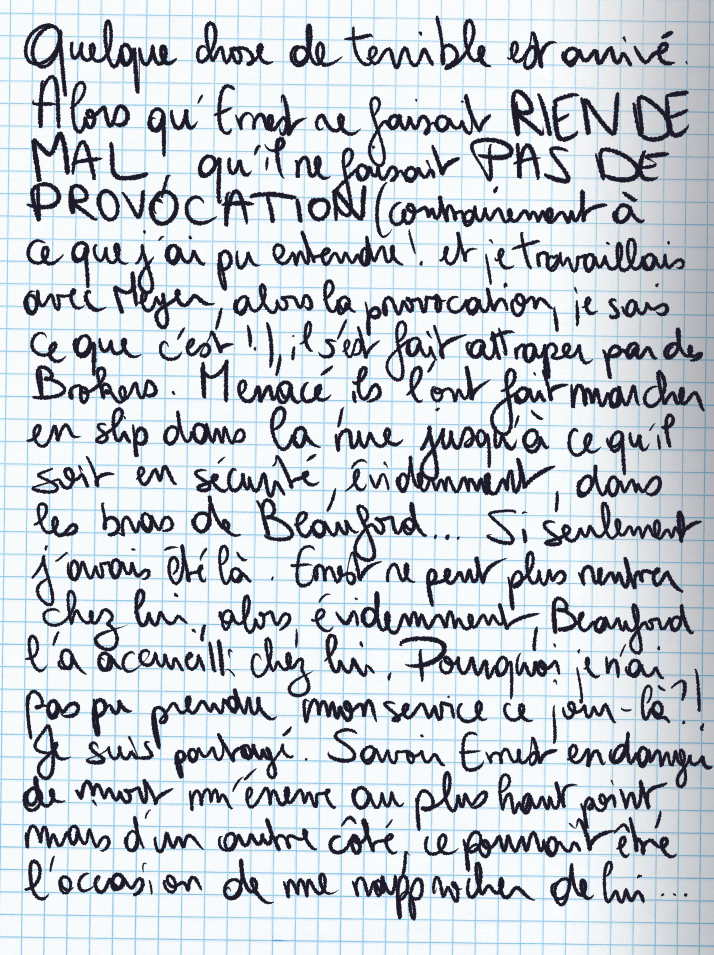 Quelque chose de terrible est arrivé.
Alors qu'Ernest ne faisait RIEN DE
MAL, qu'il ne faisait PAS DE
PROVOCATION (contrairement à
ce que j'ai pu entendre! et je travaillais
avec Meyer, alors la provocation, je sais
ce que c'est!), il s'est fait attraper par des
Brokers. Menacé, ils l'ont fait marcher
en slip dans la rue jusqu'à ce qu'il
soit en sécurité, évidemment, dans
les bras de Beauford... Si seulement
j'avais été là. Ernest ne peut plus rentrer
chez lui, alors, évidemment, Beauford
l'a accueilli chez lui. Pourquoi je n'ai
pas pu prendre mon service ce jour-là?!
Je suis partagé. Savoir Ernest en danger
de mort m'énerve au plus haut point,
mais d'un autre côté, ce pourrait être
l'occasion de me rapprocher de lui...